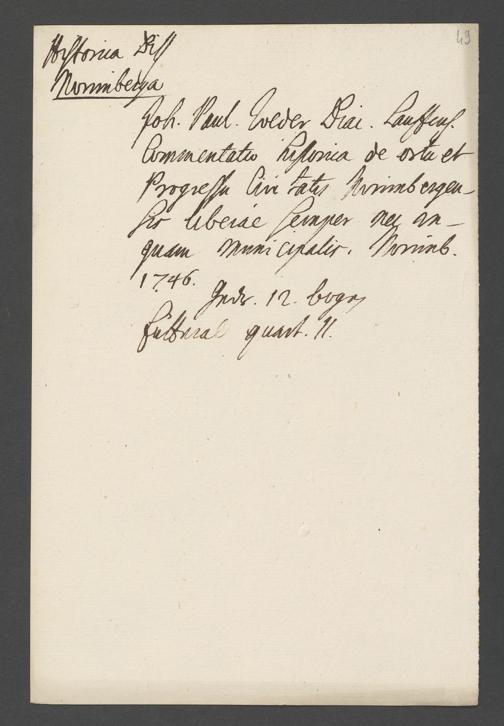 49
Historica Diss
Norimberga
Joh. Paul. Roeder Diac. Lauffens.
Commentatio historica de ortu et
Progressu Civitatis Norimbergen-
sis liberae semper nec un-
quam municipalis. Norimb.
1746.
12. bogen
Futteral quart. 11.